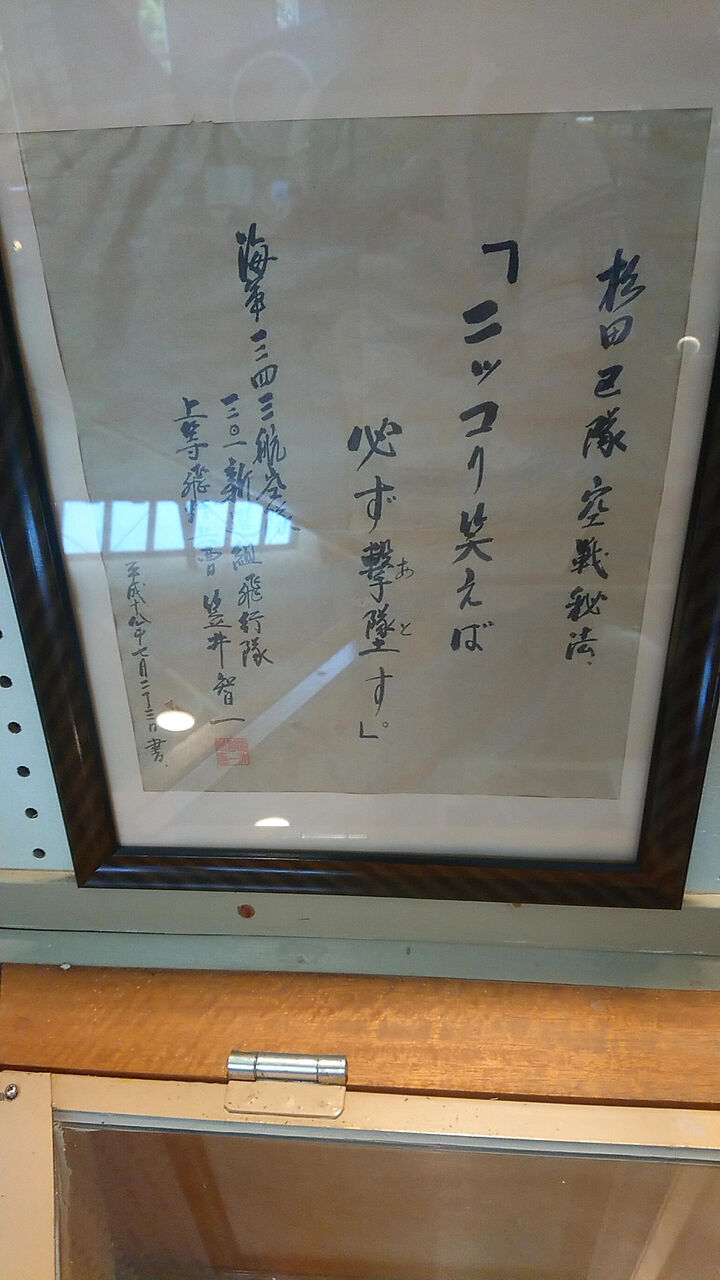 杉田区隊空戦秘法、
「ニッコリ笑えば
必ず撃墜す。」
あと
海軍三四三航空隊
三〇一新選組飛行隊
上等飛行兵曹 笠井智一
平成十九年七月二十三日 書、